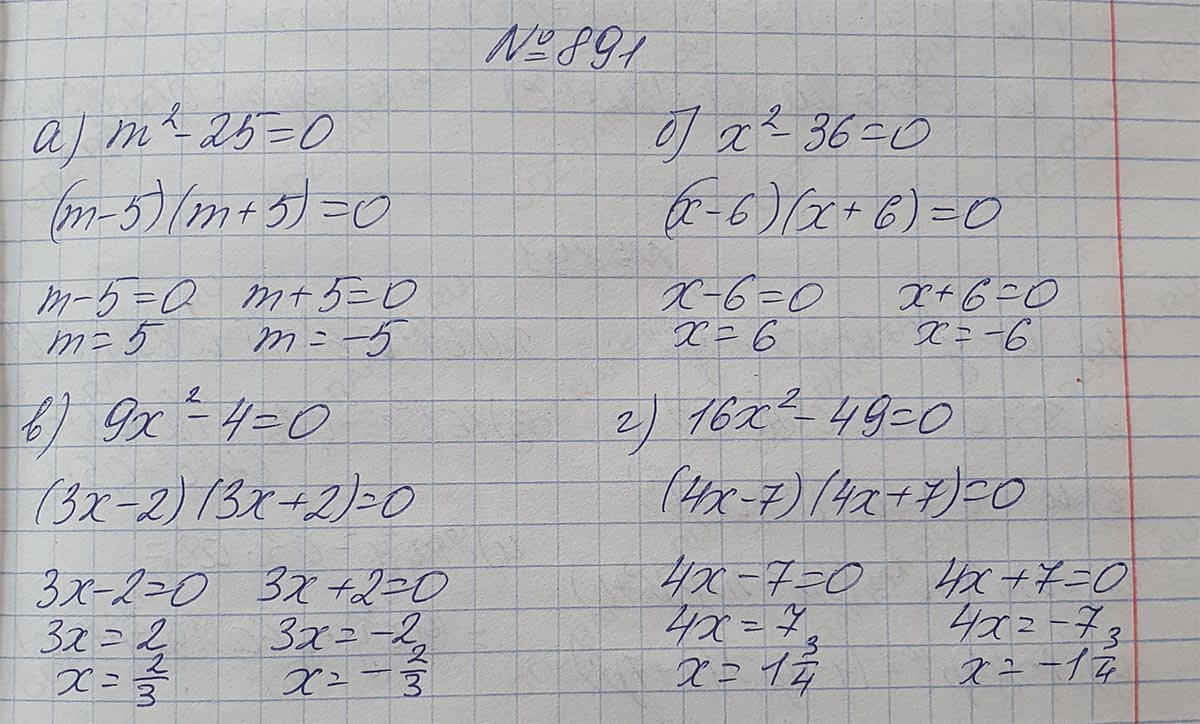 №891
а) m² - 25 = 0
(m - 5)(m + 5) = 0
m - 5 = 0 m + 5 = 0
m = 5 m = -5
б) x² - 36 = 0
(x - 6)(x + 6) = 0
x - 6 = 0 x + 6 = 0
x = 6 x = -6
в) 9x² - 4 = 0
(3x - 2)(3x + 2) = 0
3x - 2 = 0 3x + 2 = 0
3x = 2 3x = -2
x = 2/3 x = -2/3
г) 16x² - 49 = 0
(4x - 7)(4x + 7) = 0
4x - 7 = 0 4x + 7 = 0
4x = 7 4x = -7
x = 1 3/4 x = -1 3/4